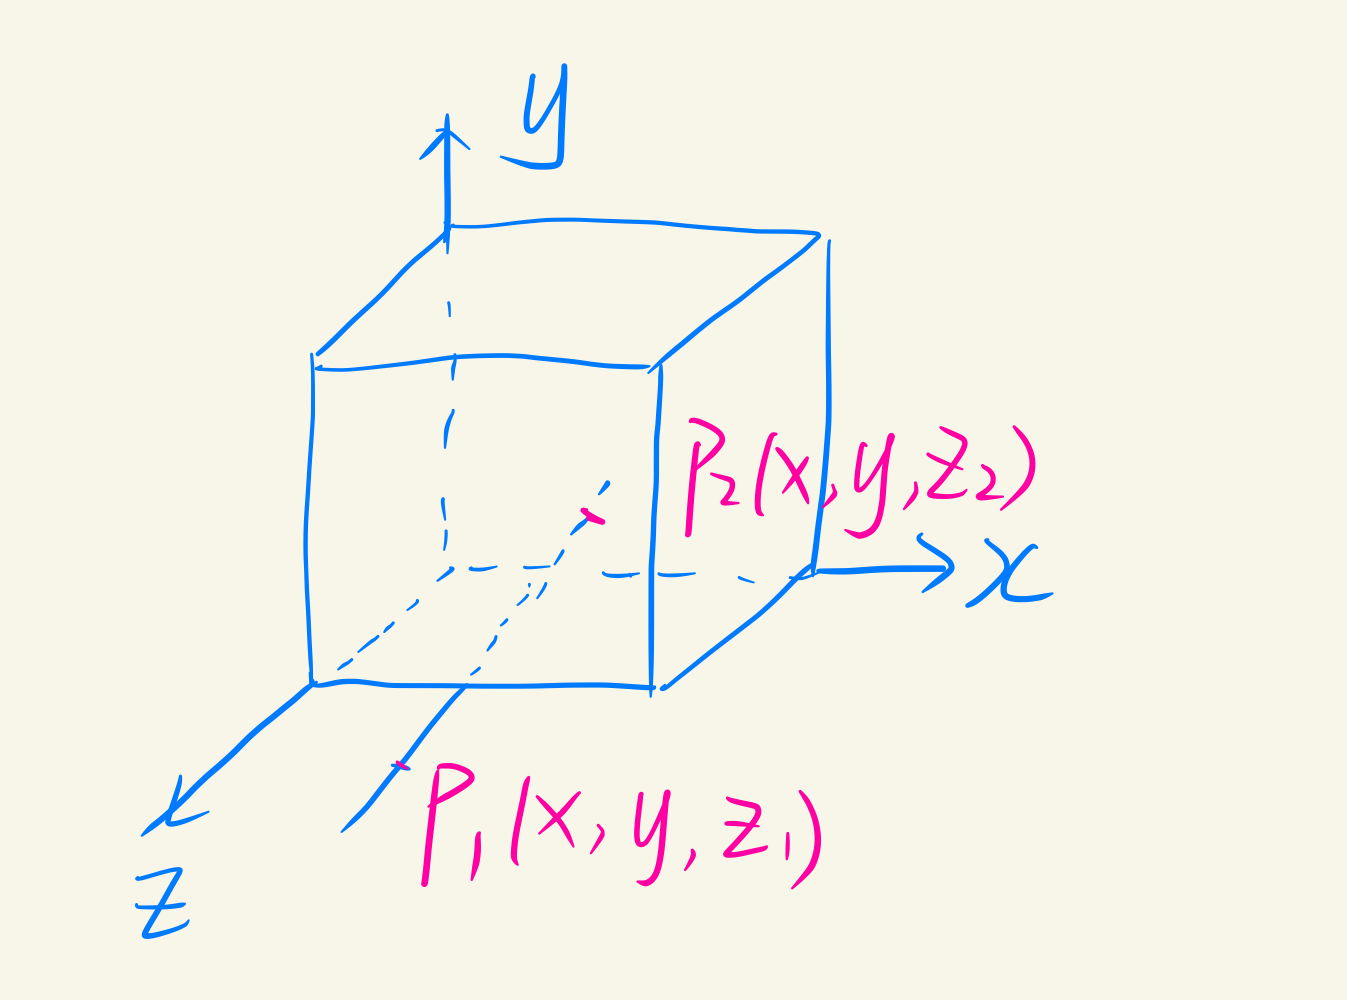 y
P₂(x,y,z₂)
x
P₁(x,y,z₁)
z